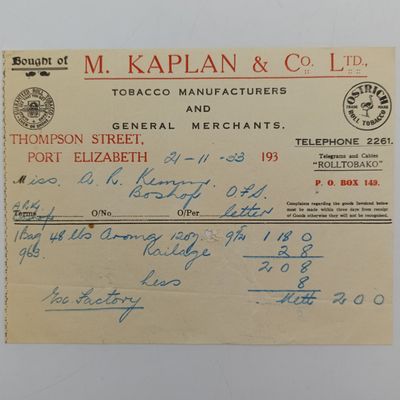 Bought of M. KAPLAN & Co. LTD.,
TOBACCO MANUFACTURERS
AND
GENERAL MERCHANTS.
OSTRICH
TRADE MARK
ROLL TOBACCO
THOMPSON STREET,
PORT ELIZABETH 21-11-33 193
TELEPHONE 2261.
Telegrams and Cables
"ROLLTOBAKO"
P. O. BOX 149.
Miss A. R.
Boshof O.F.S.
Complaints regarding the goods Invoiced below
must be made within three days from receipt
of Goods otherwise they will not be recognised.
Terms O/No. O/Per letter
1 Bag 48 lbs Aroma 120z 9½ 1 18 0
963 Railage 2 8
2 0 8
Less 8
Ex Factory Nett 2 0 0